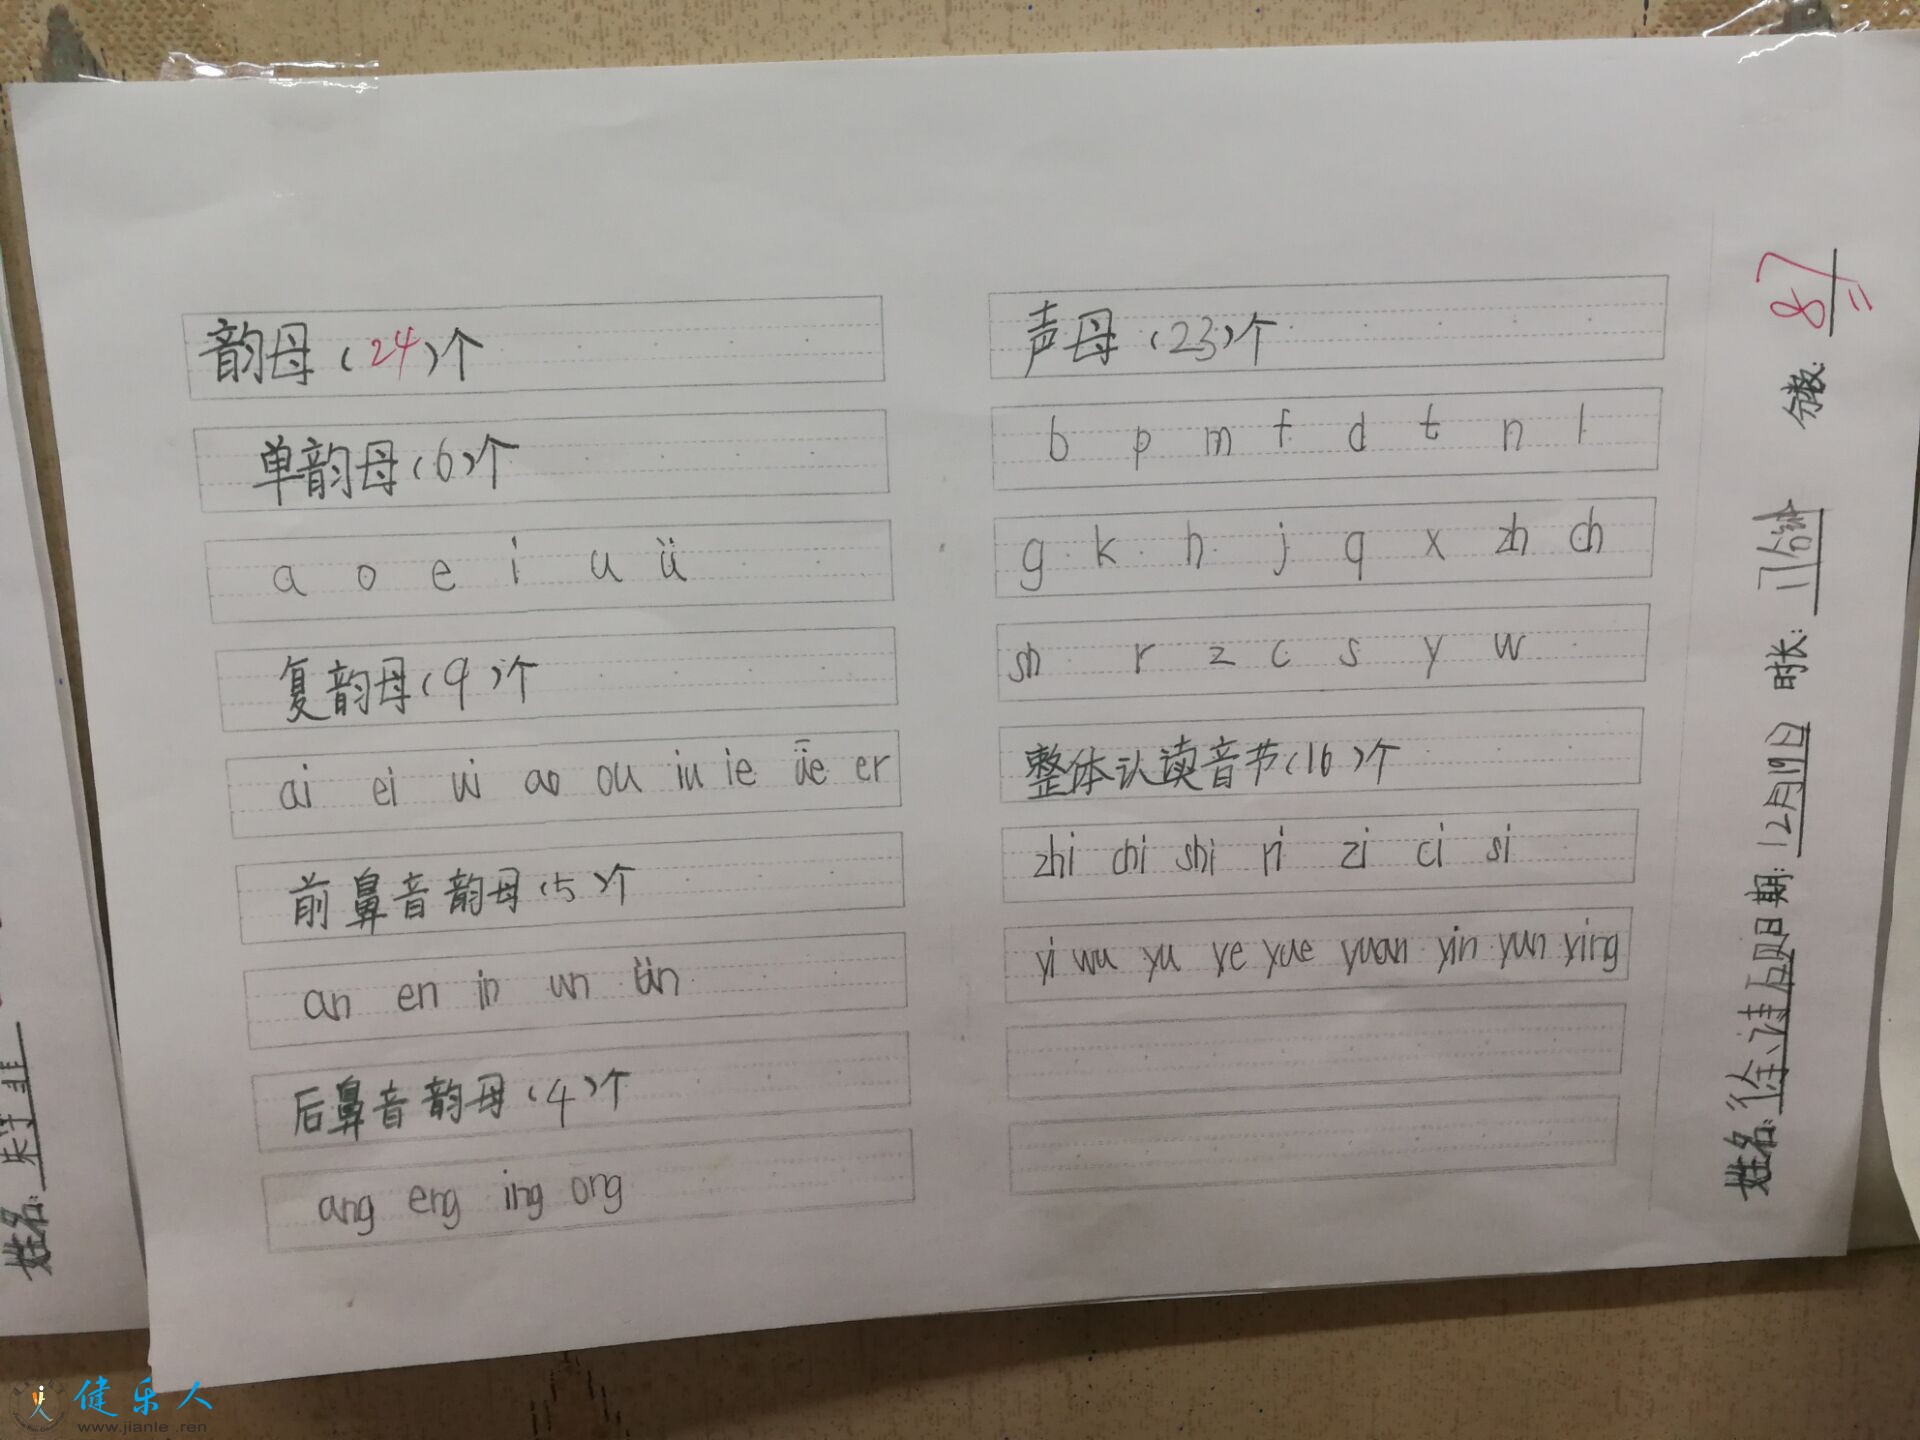 韵母(24)个
单韵母(6)个
a o e i u ü
复韵母(9)个
ai ei ui ao ou iu ie üe er
前鼻音韵母(5)个
an en in un ün
后鼻音韵母(4)个
ang eng ing ong
声母(23)个
b p m f d t n l
g k h j q x zh ch
sh r z c s y w
整体认读音节(16)个
zhi chi shi ri zi ci si
yi wu yu ye yue yuan yin yun ying
姓名:徐诗 日期:12月19日 时长: 分数:
姓名:
健乐人
www.jianle.ren